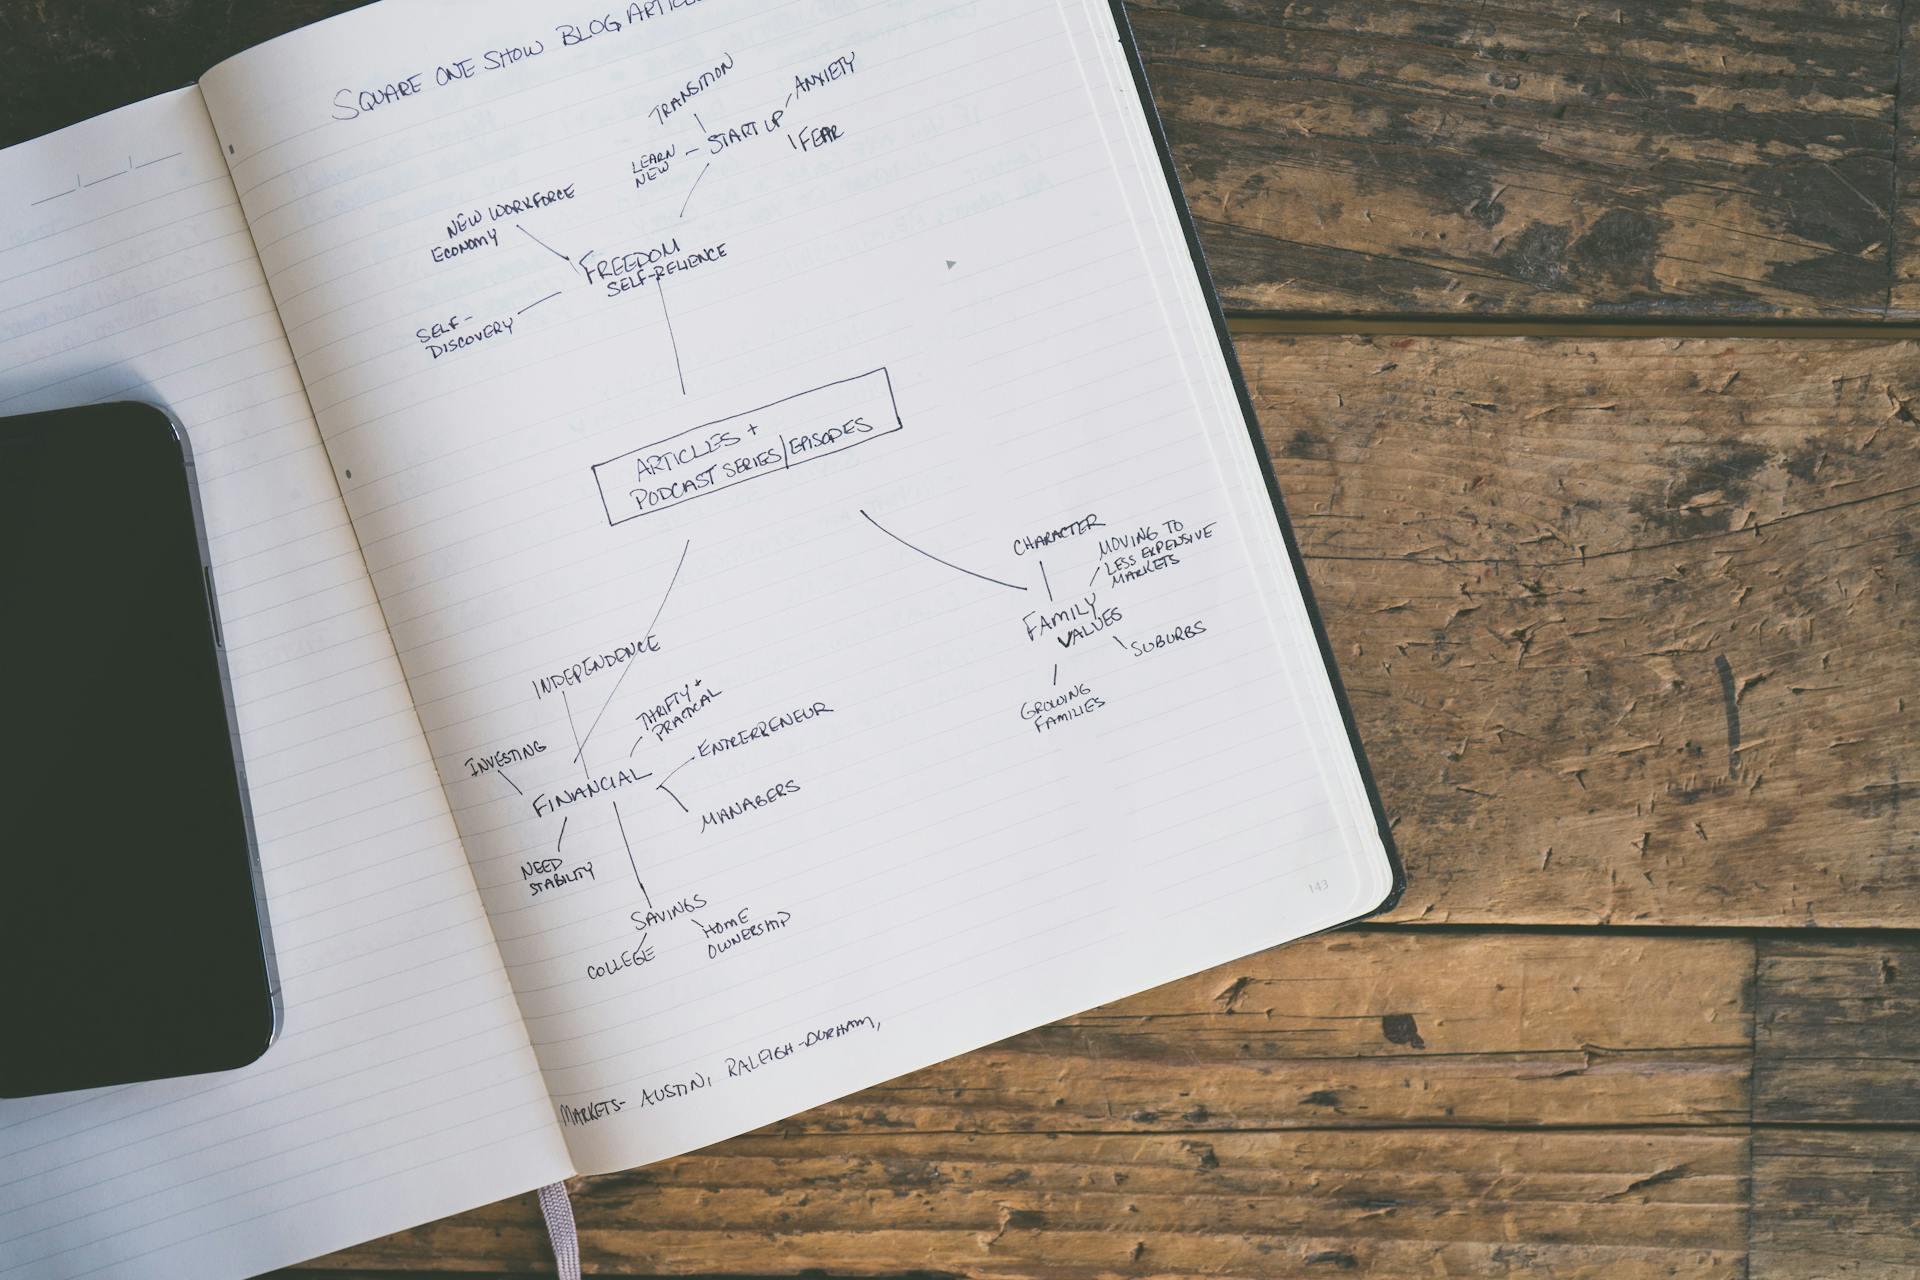 SQUARE ONE SHOW BLOG ARTICLE
TRANSITION
ANXIETY
START UP
FEAR
LEARN
NEW
NEW WORKFORCE
ECONOMY
FREEDOM
SELF-RELIENCE
SELF-
DISCOVERY
ARTICLES +
PODCAST SERIES/EPISODES
CHARACTER
MOVING TO
LESS EXPENSIVE
MARKETS
FAMILY
VALUES
SUBURBS
GROWING
FAMILIES
INDEPENDENCE
THRIFTY +
PRACTICAL
ENTREPRENEUR
INVESTING
FINANCIAL
MANAGERS
NEED
STABILITY
SAVINGS
HOME
OWNERSHIP
COLLEGE
143
MARKETS- AUSTIN, RALEIGH-DURHAM,